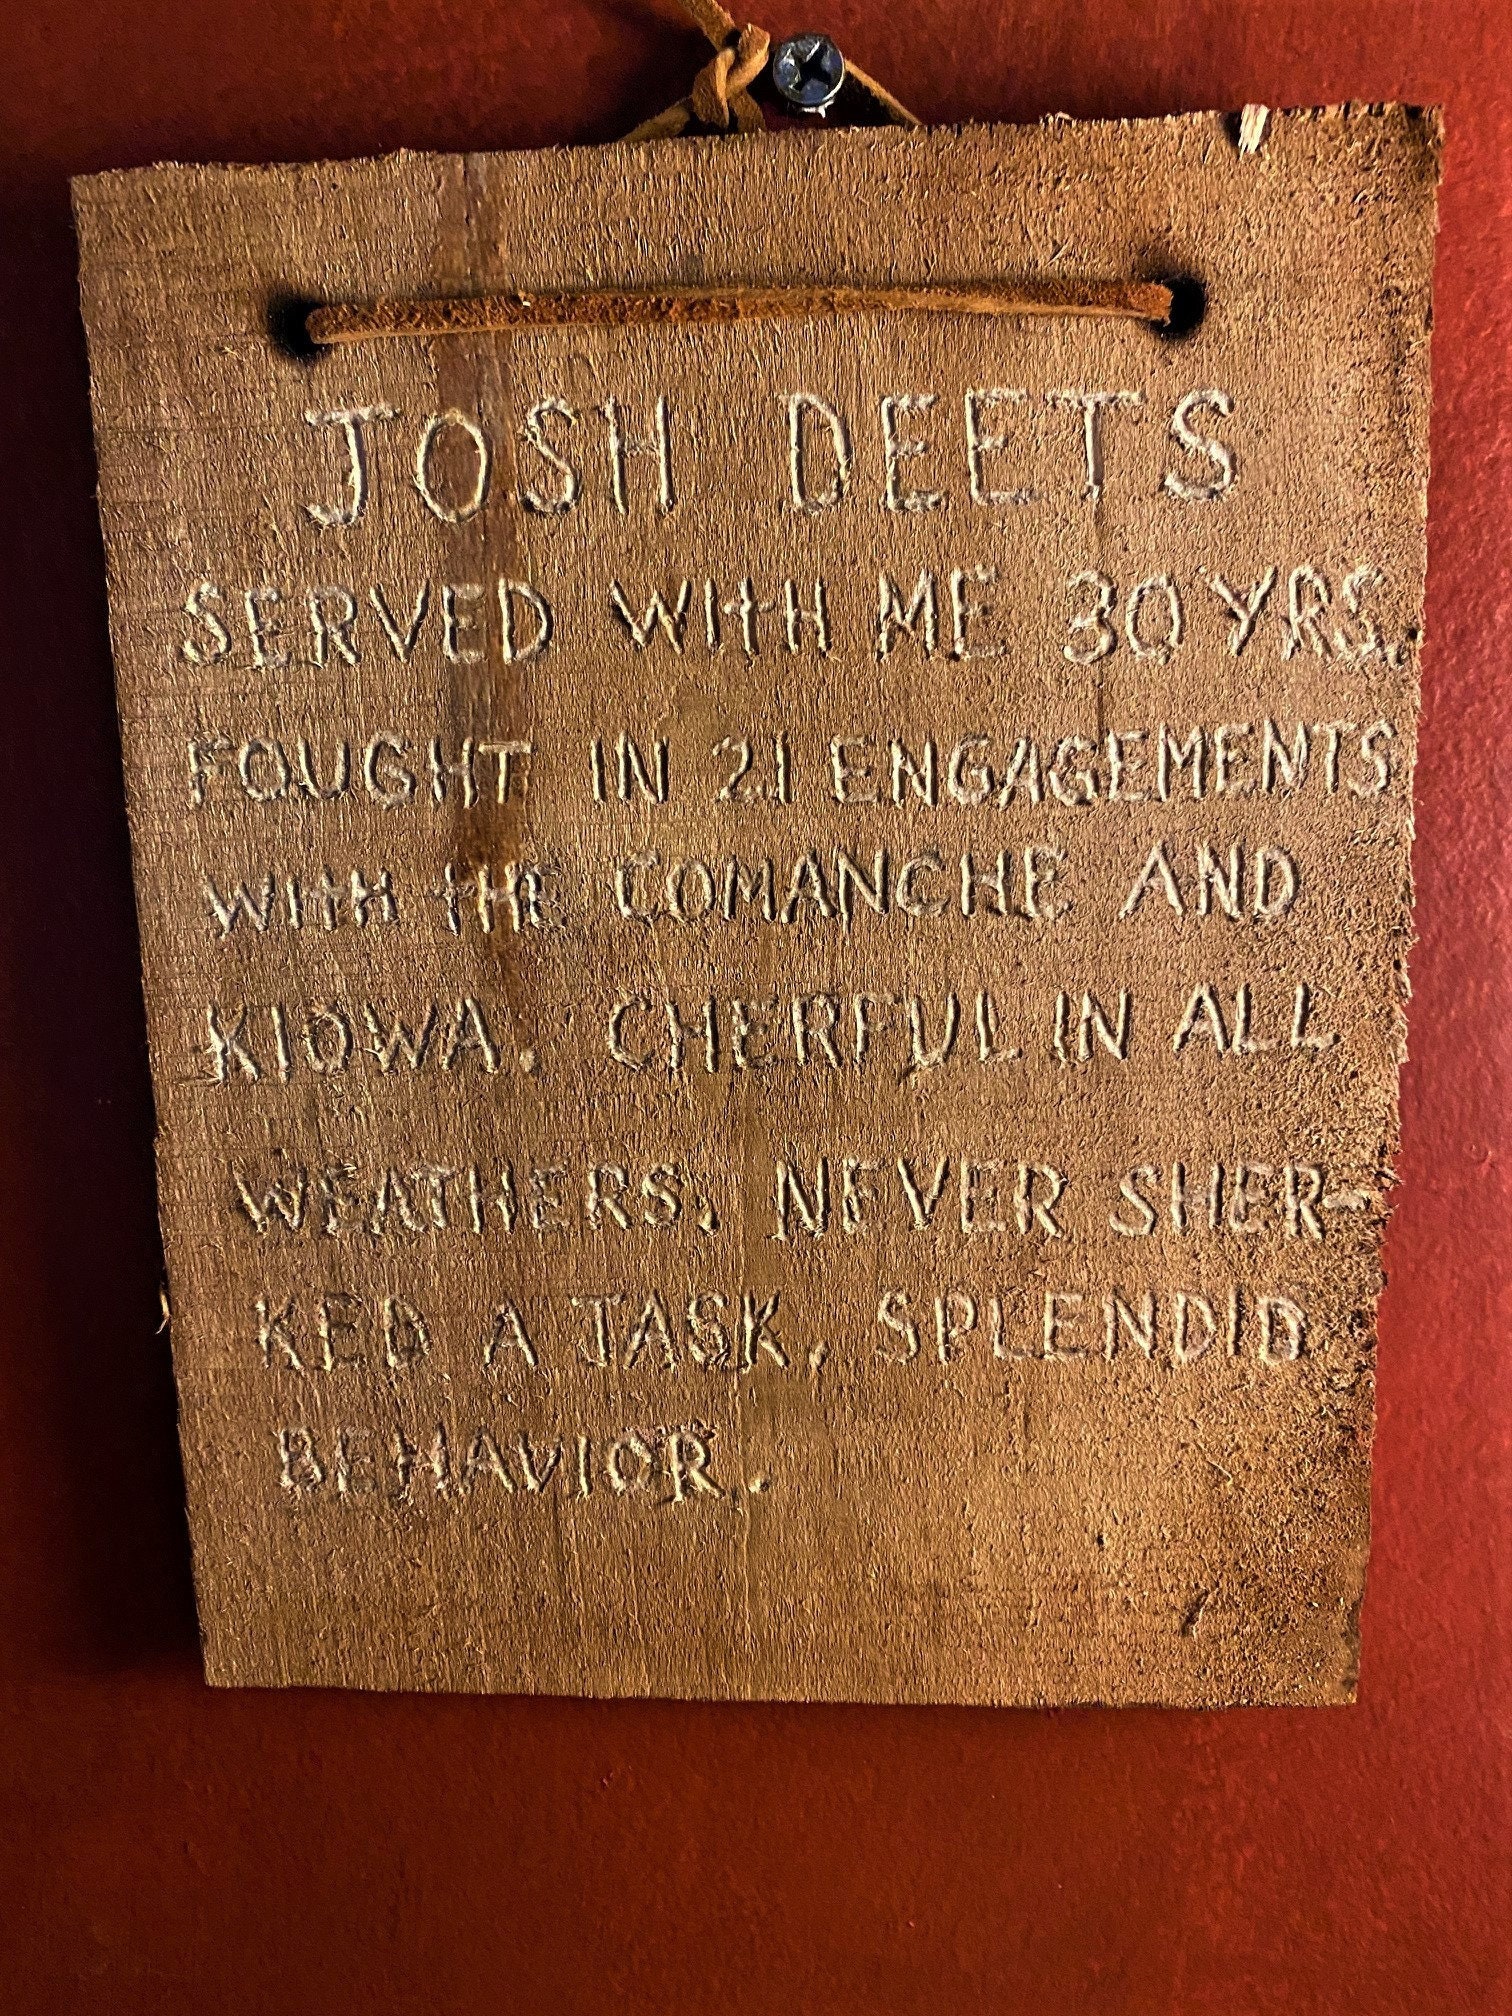 JOSH DEETS
SERVED WITH ME 30 YRS.
FOUGHT IN 21 ENGAGEMENTS
WITH THE COMANCHE AND
KIOWA. CHERFUL IN ALL
WEATHERS. NEVER SHER-
KED A TASK. SPLENDID
BEHAVIOR.